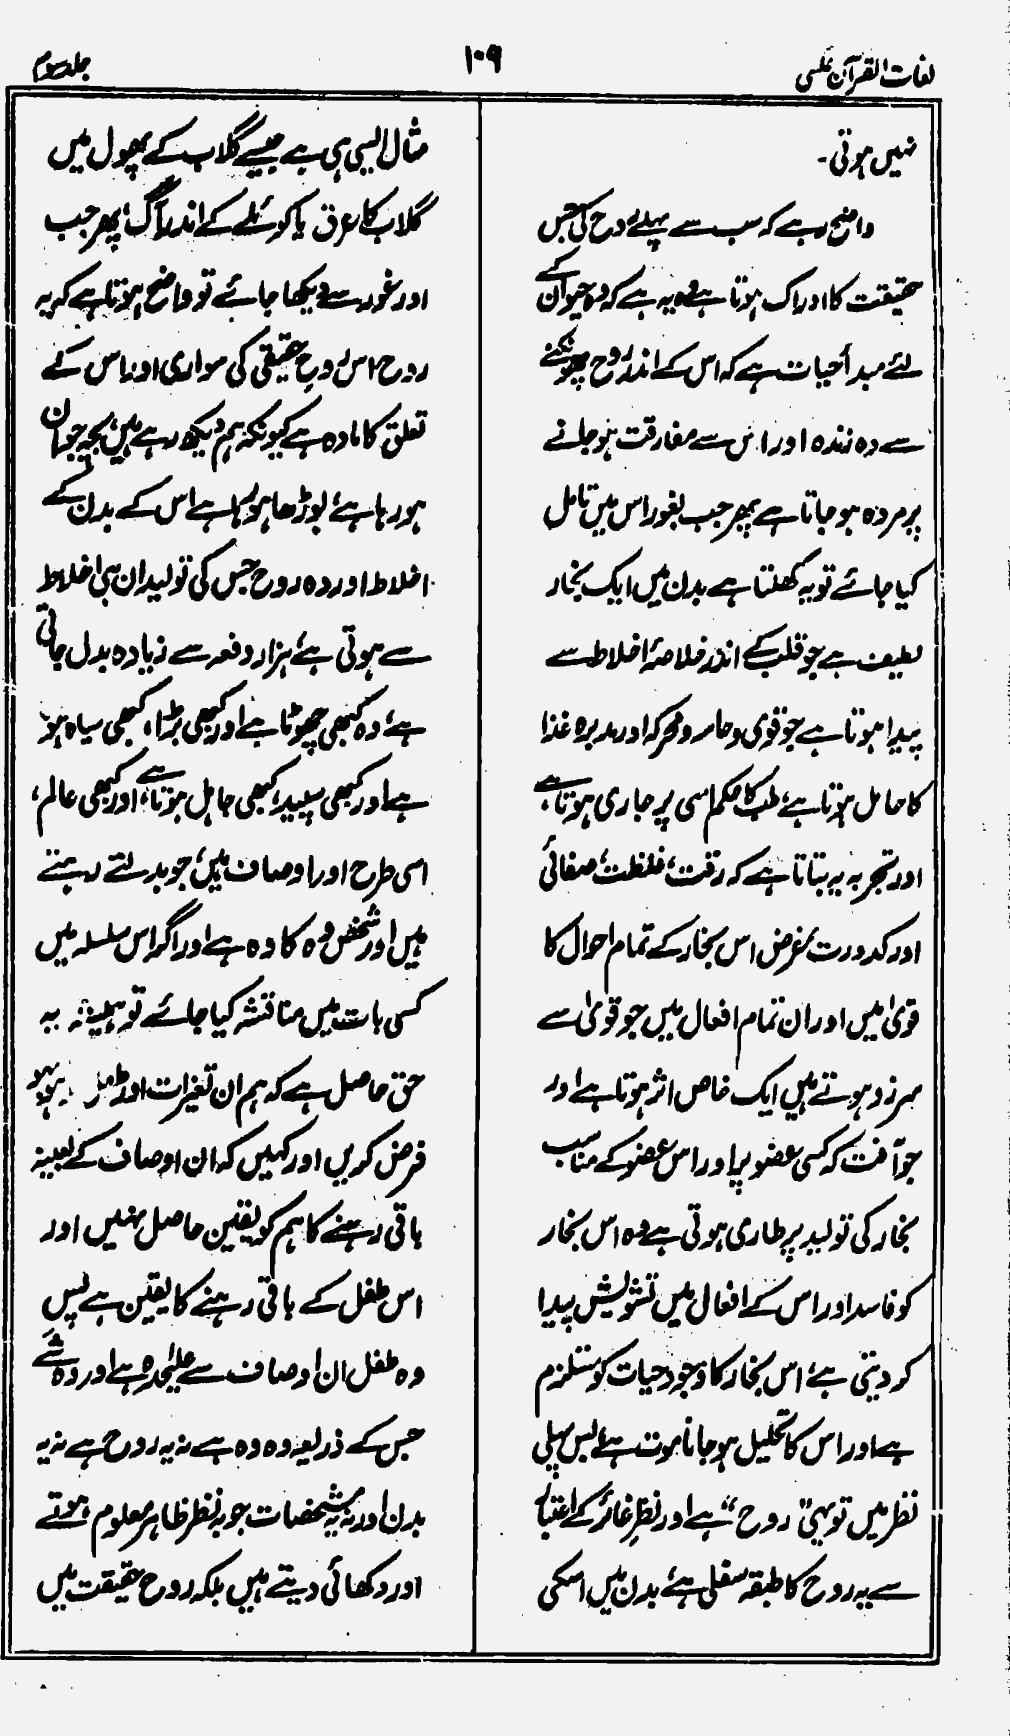 لغات القرآن عکسی
۱۰۹
جلد سوم
نہیں ہوتی۔
واضح رہے کہ سب سے پہلے روح کی جس
حقیقت کا ادراک ہوتا ہے وہ یہ ہے کہ وہ حیوان کے
لئے مبدأ حیات ہے کہ اس کے اندر روح پھونکنے
سے وہ زندہ اور اس سے مفارقت ہو جانے
پر مردہ ہو جاتا ہے پھر جب بغور اس میں تامل
کیا جائے تو یہ کھلتا ہے بدن میں ایک بخار
لطیف ہے جو قلب کے اندر خلاصۂ اخلاط سے
پیدا ہوتا ہے جو قوی و حاسہ و محرکہ اور مدبرہ غذا
کا حامل ہوتا ہے، طب کا حکم اسی پر جاری ہوتا ہے،
اور تجربہ یہ بتاتا ہے کہ رقت، غلظت، صفائی
اور کدورت بغرض اس بخار کے تمام احوال کا
قویٰ میں اور ان تمام افعال میں جو قویٰ سے
سرزد ہوتے ہیں ایک خاص اثر ہوتا ہے اور
جو آفت کہ کسی عضو پر اور اس عضو کے مناسب
بخار کی تولید پر طاری ہوتی ہے وہ اس بخار
کو فاسد اور اس کے افعال میں تشویش پیدا
کر دیتی ہے، اس بخار کا وجود حیات کو مستلزم
ہے اور اس کا تحلیل ہو جانا موت ہے، پس پہلی
نظر میں تو یہی "روح" ہے اور نظرِ غائر کے اعتبار
سے یہ روح کا طبقہ سفلی ہے، بدن میں اسکی
مثال ایسی ہی ہے جیسے گلاب کے پھول میں
گلاب کا عرق یا کوئلے کے اندر آگ، پھر جب
اور غور سے دیکھا جائے تو واضح ہوتا ہے کہ یہ
روح اس روحِ حقیقی کی سواری اور اس کے
تعلق کا مادہ ہے کیونکہ ہم دیکھ رہے ہیں، بچہ جوان
ہو رہا ہے، بوڑھا ہو رہا ہے اس کے بدن کے
اخلاط اور وہ روح جس کی تولید ان ہی اخلاط
سے ہوتی ہے، ہزار دفعہ سے زیادہ بدل جاتی
ہے، وہ کبھی چھوٹا ہے اور کبھی بڑا، کبھی سیاہ ہو
ہے اور کبھی سپید، کبھی جاہل ہوتا ہے، اور کبھی عالم،
اسی طرح اور اوصاف ہیں، جو بدلتے رہتے
ہیں اور شخص وہ کا وہ ہے اور اگر اس سلسلہ میں
کسی بات میں مناقشہ کیا جائے تو ہمیشہ یہ
حق حاصل ہے کہ ہم ان تغیرات اور
فرض کریں اور کہیں کہ ان اوصاف کے بعینہ
باقی رہنے کا ہم کو یقین حاصل نہیں اور
اس طفل کے باقی رہنے کا یقین ہے پس
وہ طفل ان اوصاف سے علیٰحدہ ہے اور وہ شے
جس کے ذریعہ وہ وہ ہے نہ یہ روح ہے نہ یہ
بدن اور نہ یہ مشخصات جو بہ نظر ظاہر معلوم ہوتے
اور دکھائی دیتے ہیں بلکہ روح حقیقت میں